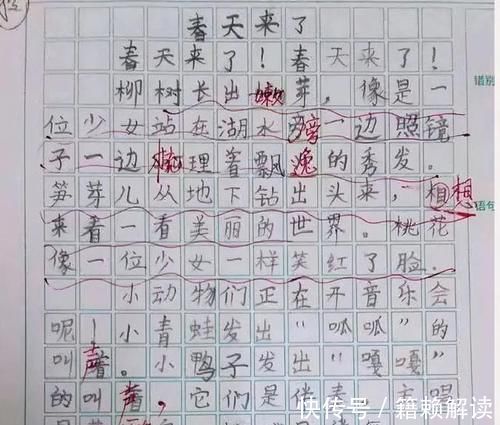 春天来了
春天来了！春天来了！
柳树长出嫩芽，像是一
位少女站在湖水旁一边照镜
子一边梳理着飘逸的秀发。
笋芽儿从地下钻出头来，相想
来看一看美丽的世界。桃花
像一位少女一样笑红了脸。
小动物们正在开音乐会
呢！小青蛙发出“呱呱”的
叫声。小鸭子发出“嘎嘎”
的叫声，它们是
错别
语句
快传号/籍赖解读